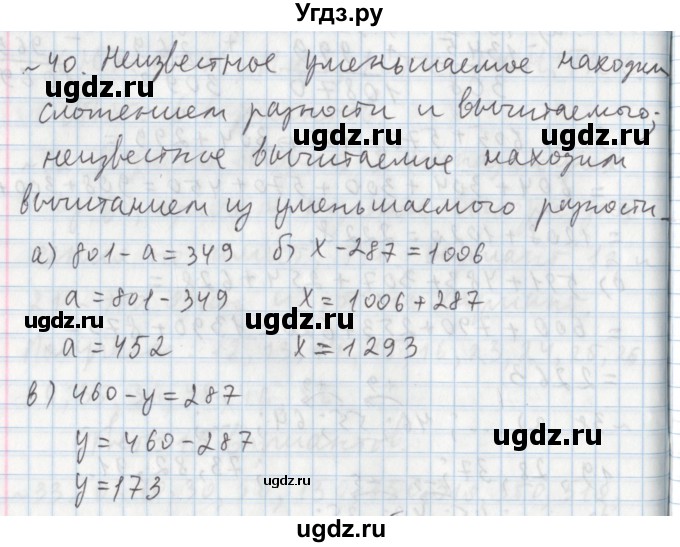 Угдз.ру
~40. Неизвестное уменьшаемое находим
сложением разности и вычитаемого;
ugdz.ru ugdz.ru
неизвестное вычитаемое находим
вычитанием из уменьшаемого разности.
а) 801 - а = 349 б) x - 287 = 1006
а = 801 - 349 x = 1006 + 287
ugdz.ru ugdz.ru
а = 452 x = 1293
в) 460 - y = 287
y = 460 - 287 ugdz.ru
y = 173 ugdz.ru
ugdz.ru